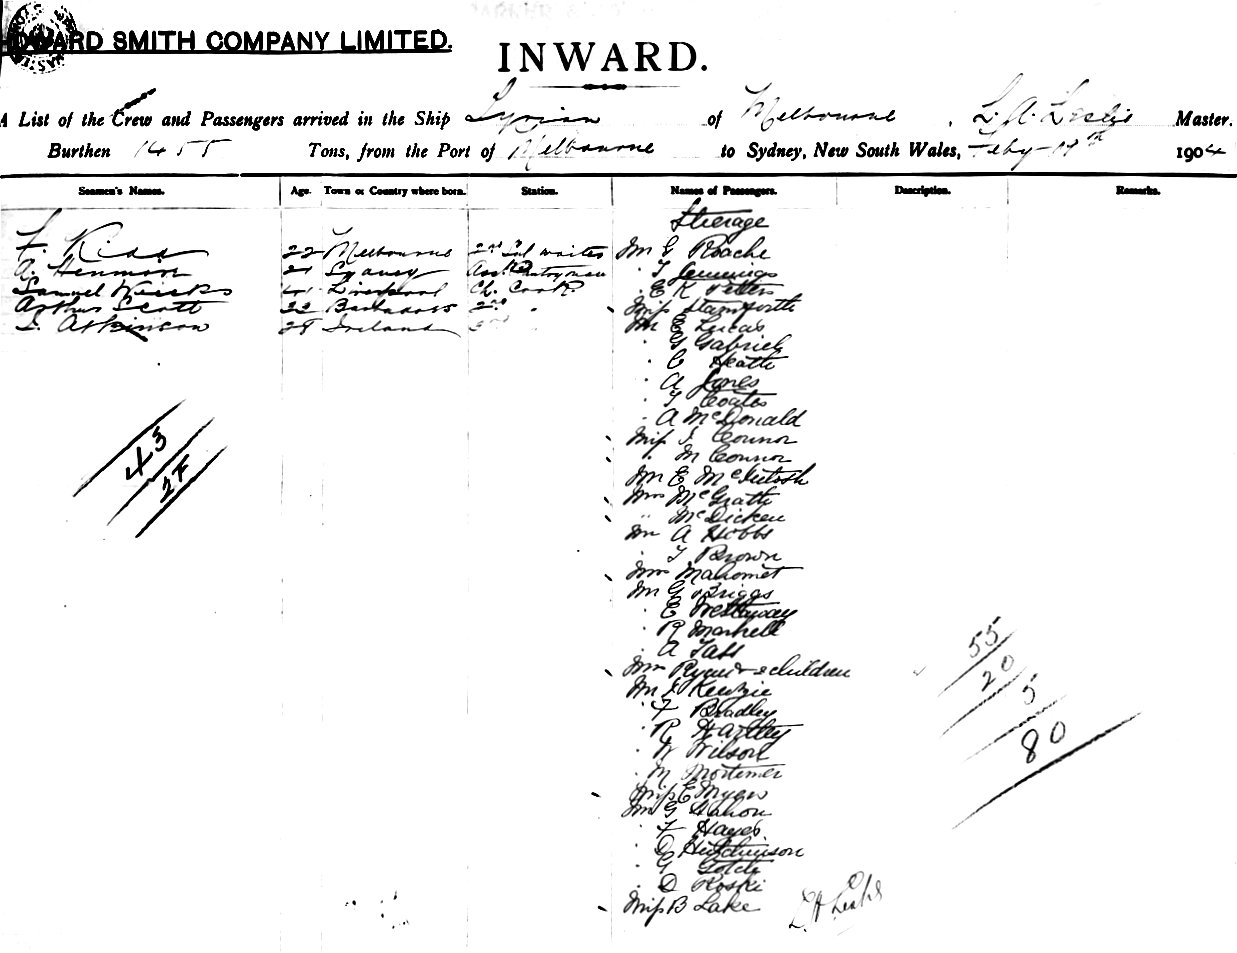 HOWARD SMITH COMPANY LIMITED.
INWARD.
A List of the Crew and Passengers arrived in the Ship Syrian of Melbourne, L. A. Leslie Master.
Burthen 1455 Tons, from the Port of Melbourne to Sydney, New South Wales, Feby 19th 1904
Seamen's Names. Age. Town or Country where born. Station. Names of Passengers. Description. Remarks.
Steerage
F. Kidd 22 Melbourne 2nd Sal waiter Mr G Roache
A. Henmore 21 Sydney Asst Pantryman " T Jennings
Samuel 41 Liverpool Ch. Cook " E K
Arthur Scott 22 Barbados 2nd " Miss Stanforth
J. Atkinson 28 Ireland 3rd Mr E Lucas
" G Gabriel
" C Heath
" A Jones
" T Coates
" A McDonald
Miss J Connor
" M Connor
Mr E McIntosh
Mrs McGrath
" McDicken
Mr A Hobbs
" T Brown
Mrs Mahomet
Mr G Briggs
" E Westaway
" R
" A
Mrs Ryan & 2 children
Mr J Kenzie
" F Bradley
" R Hartley
" W Wilson
" M Mortimer
Miss E Myers
Mr G Mahon
" F Hayes
" D Hutchinson
" G
" D Roski
Miss B Lake
L A Leslie
43
27
55
20
5
80